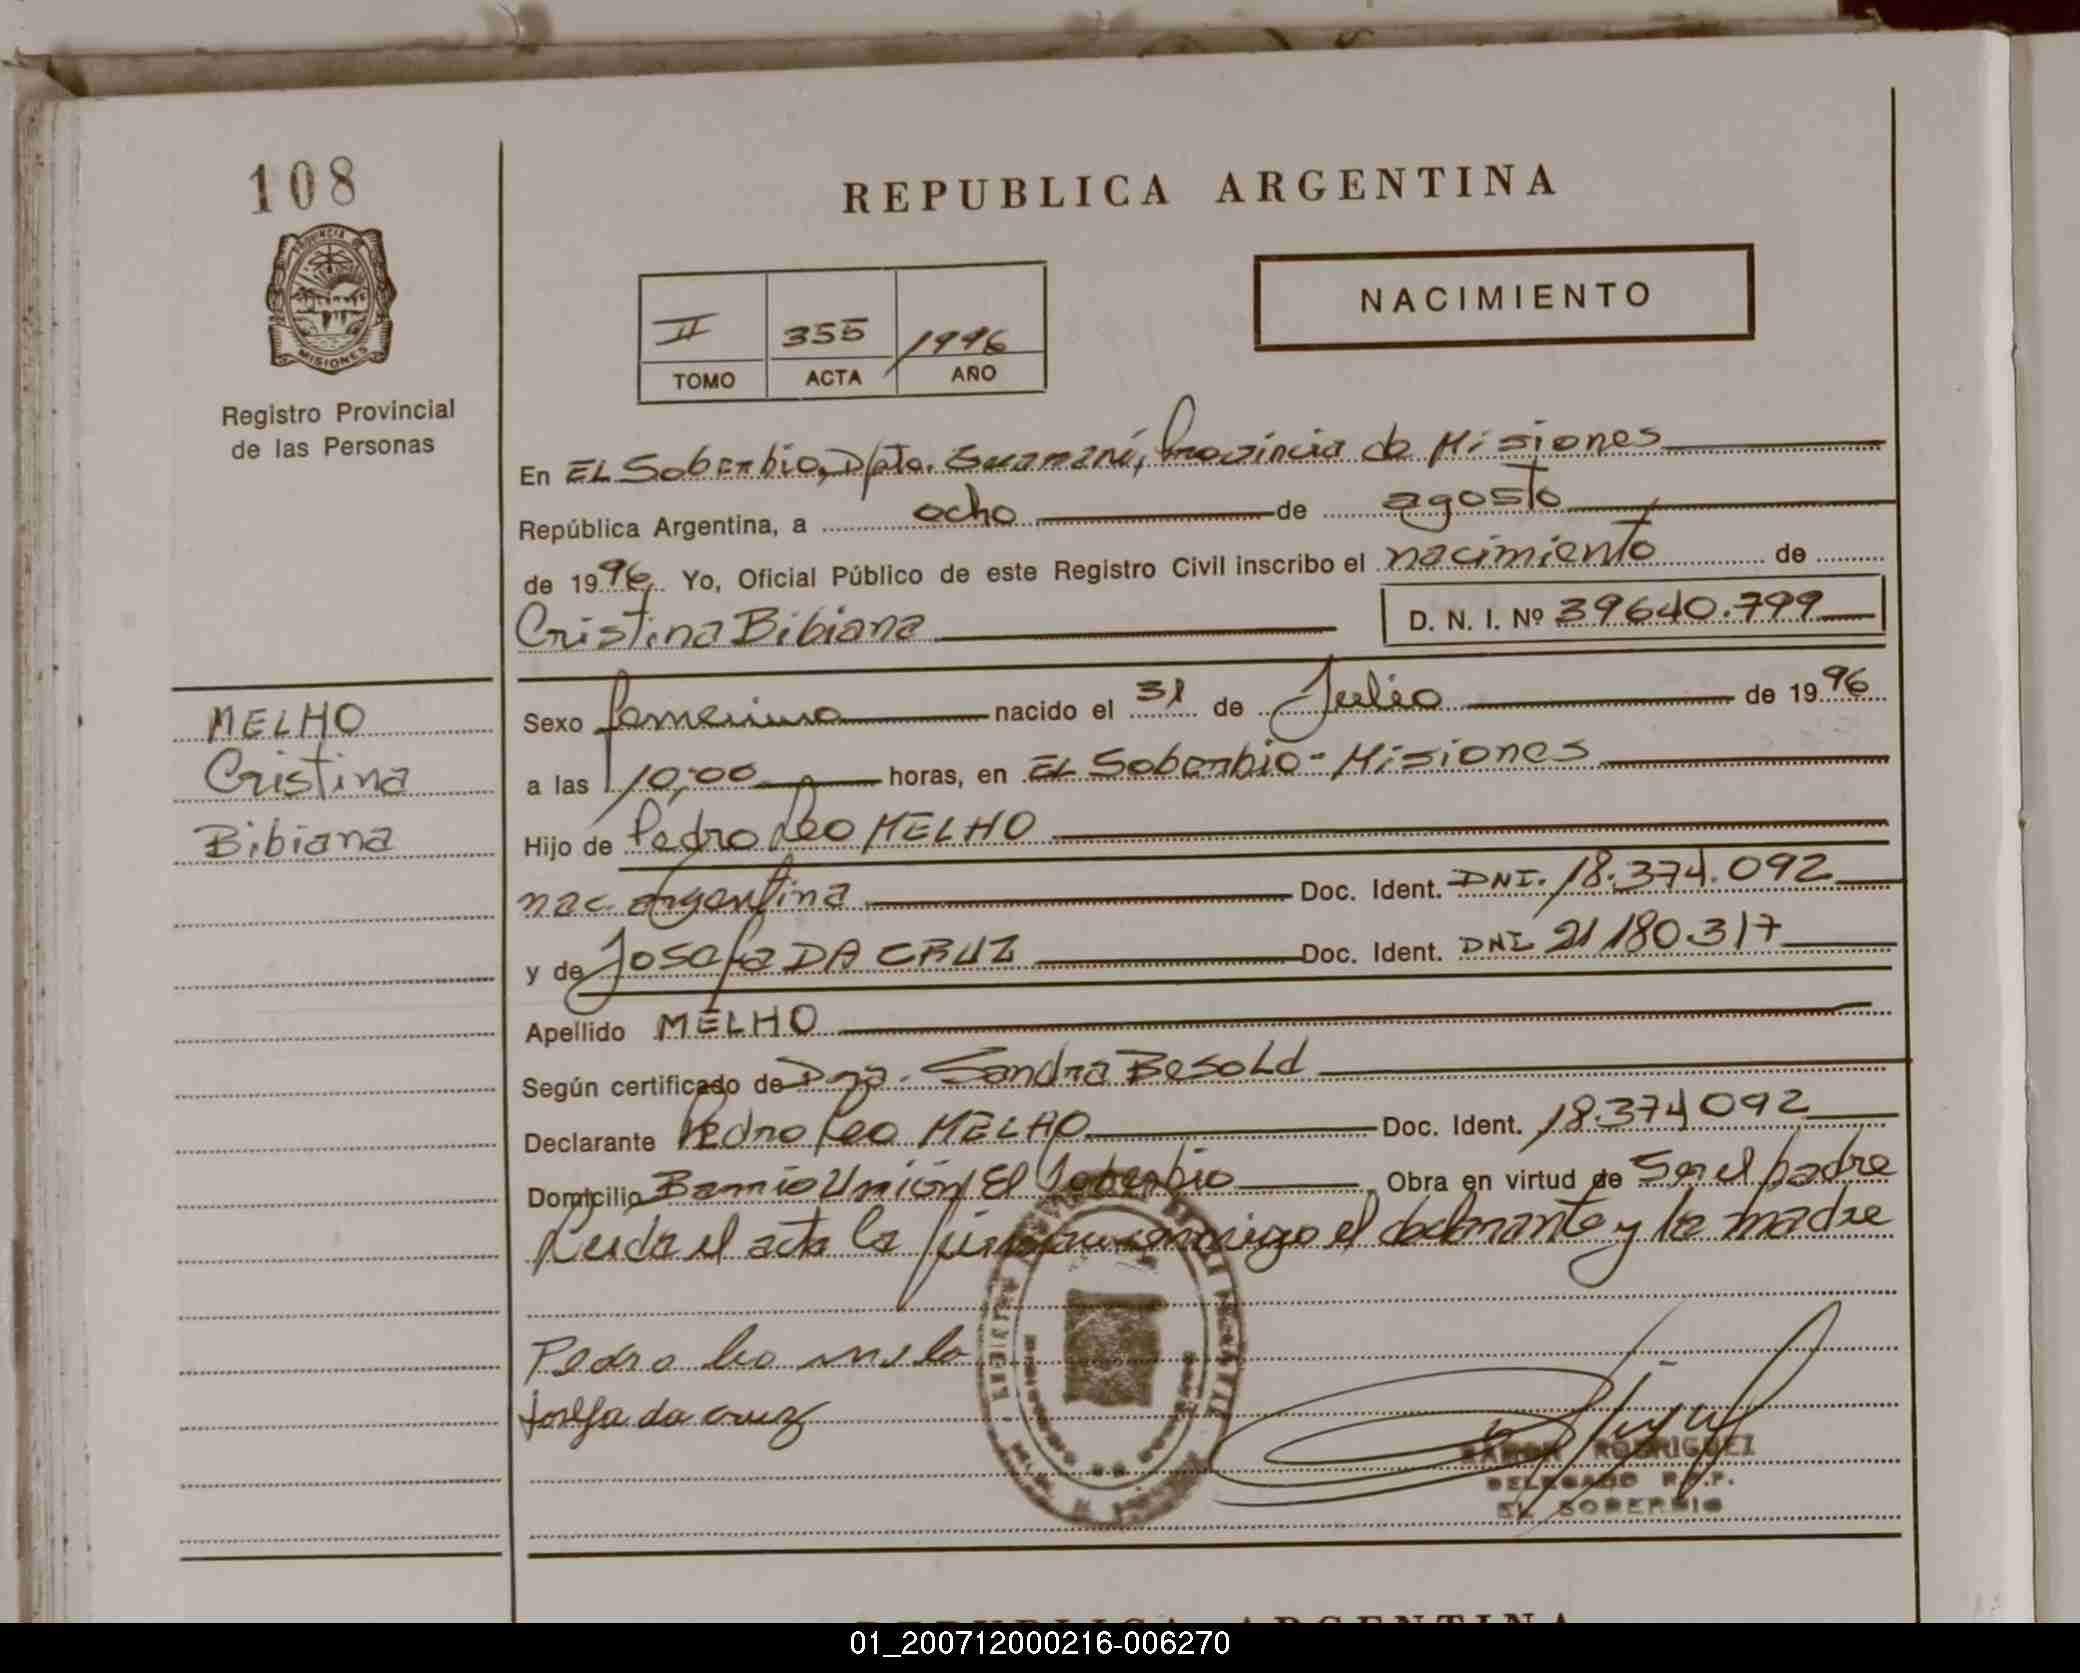 108
REPUBLICA ARGENTINA
PROVINCIA DE
MISIONES
NACIMIENTO
II 355 1996
TOMO ACTA AÑO
Registro Provincial
de las Personas
En EL Soberbio, Dpto. Guaraní, Provincia de Misiones
República Argentina, a ocho de agosto
de 1996 Yo, Oficial Público de este Registro Civil inscribo el nacimiento de
Cristina Bibiana D. N. I. Nº 39640.799
MELHO
Cristina
Bibiana
Sexo femenino nacido el 31 de Julio de 1996
a las 10,00 horas, en EL Soberbio - Misiones
Hijo de Pedro Leo MELHO
nac. argentina Doc. Ident. DNI. 18.374.092
y de Josefa DA CRUZ Doc. Ident. DNI 21180.317
Apellido MELHO
Según certificado de Dra. Sandra Besold
Declarante Pedro Leo MELHO Doc. Ident. 18.374 092
Domicilio Barrio Unión El Soberbio Obra en virtud de Ser el padre
Leida el acta la firman conmigo el declarante y la madre
Pedro leo melo
Josefa da cruz
RAMON RODRIGUEZ
DELEGADO R.P.P.
EL SOBERBIO
REPUBLICA ARGENTINA
01_200712000216-006270